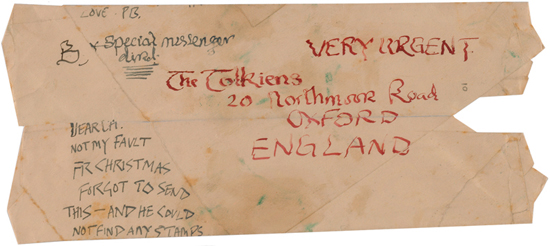 LOVE. P.B.
By special messenger
direct
VERY URGENT.
The Tolkiens
20 Northmoor Road
OXFORD
ENGLAND
NOT MY FAULT
FR CHRISTMAS
FORGOT TO SEND
THIS — AND HE COULD
NOT FIND ANY STAMPS